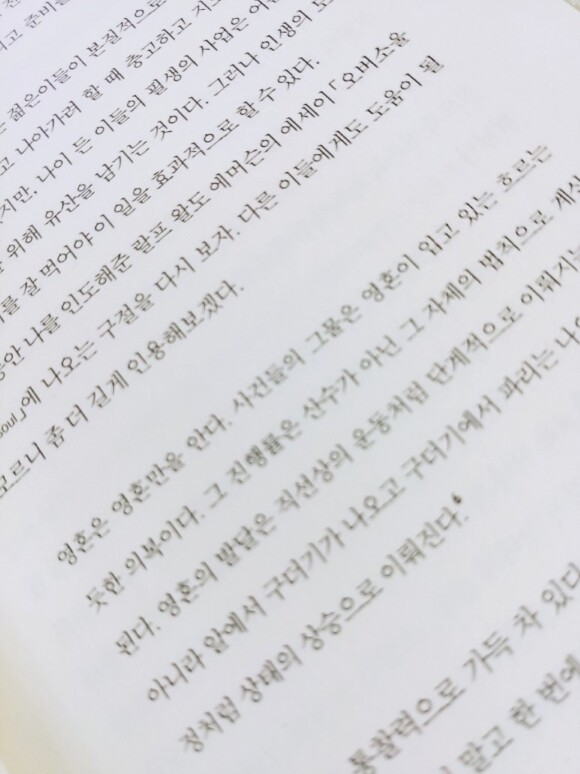 고 준비를
젊은이들이 본질적으로
고 나아가려 할 때 충고하고 지도
지만, 나이 든 이들의 필생의 사업은 어
위해 유산을 남기는 것이다. 그러나 인생의 모
를 잘 먹어야 이 일을 효과적으로 할 수 있다.
동안 나를 인도해준 랄프 왈도 에머슨의 에세이 「오버소울
soul」에 나오는 구절을 다시 보자. 다른 이들에게도 도움이 될
모르니 좀 더 길게 인용해보겠다.
영혼은 영혼만을 안다. 사건들의 그물은 영혼이 입고 있는 흐르는
듯한 의복이다. 그 진행률은 산수가 아닌 그 자체의 법칙으로 계산
된다. 영혼의 발달은 직선상의 운동처럼 단계적으로 이뤄지는
아니라 알에서 구더기가 나오고 구더기에서 파리는 나오
정처럼 상태의 상승으로 이뤄진다.6
통찰력으로 가득 차 있다
말고 한 번에